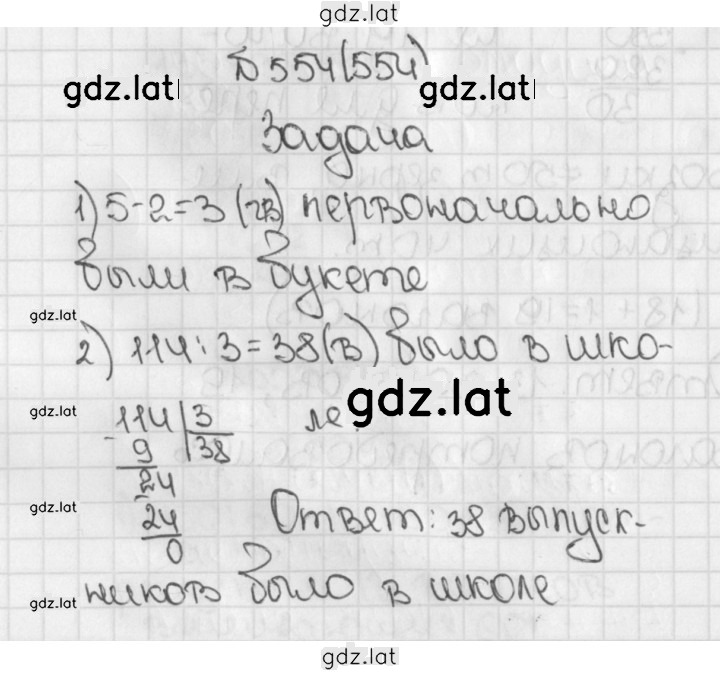 gdz.lat
№ 554(554)
gdz.lat
Задача
1) 5-2=3 (цв) первоначально
были в букете
gdz.lat
2) 114:3=38(в) было в шко-
gdz.lat
gdz.lat
114 3 ле.
- 9 38
24
gdz.lat
24 Ответ: 38 выпуск-
0
gdz.lat
ников было в школе
gdz.lat